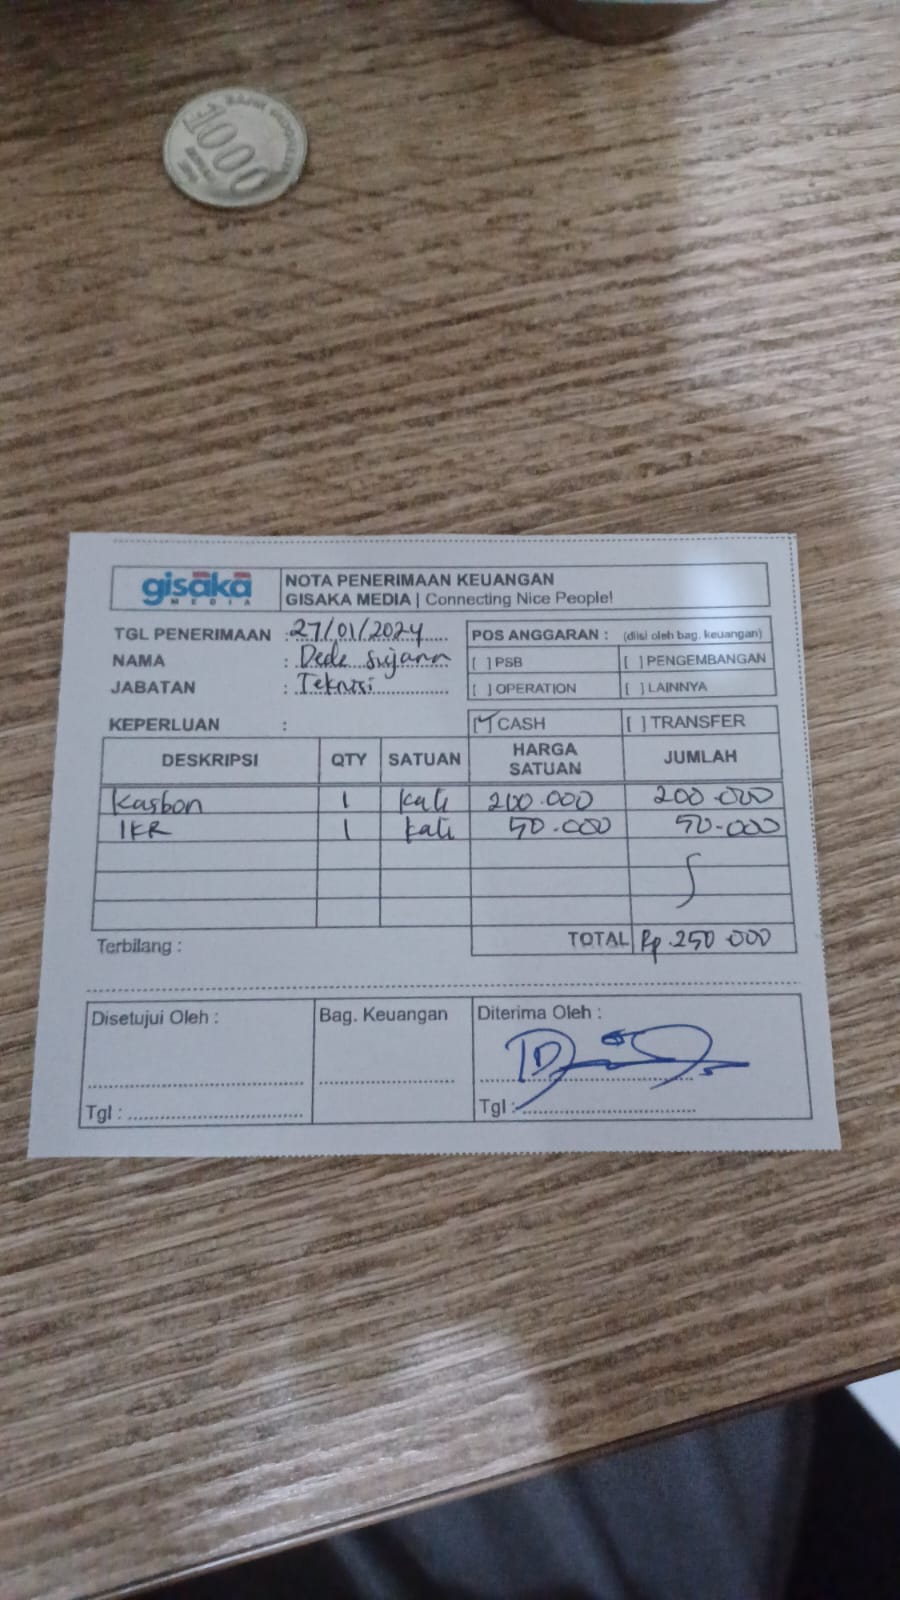 1000
gisaka
MEDIA
NOTA PENERIMAAN KEUANGAN
GISAKA MEDIA | Connecting Nice People!
TGL PENERIMAAN : 27/01/2024
NAMA : Dede Sujana
JABATAN : Teknisi
POS ANGGARAN : (diisi oleh bag. keuangan)
[ ] PSB [ ] PENGEMBANGAN
[ ] OPERATION [ ] LAINNYA
KEPERLUAN :
[✓] CASH [ ] TRANSFER
DESKRIPSI QTY SATUAN HARGA SATUAN JUMLAH
Kasbon 1 kali 200.000 200.000
IKR 1 kali 50.000 50.000
Terbilang :
TOTAL Rp. 250.000
Disetujui Oleh :
Tgl :
Bag. Keuangan
Diterima Oleh :
Tgl :